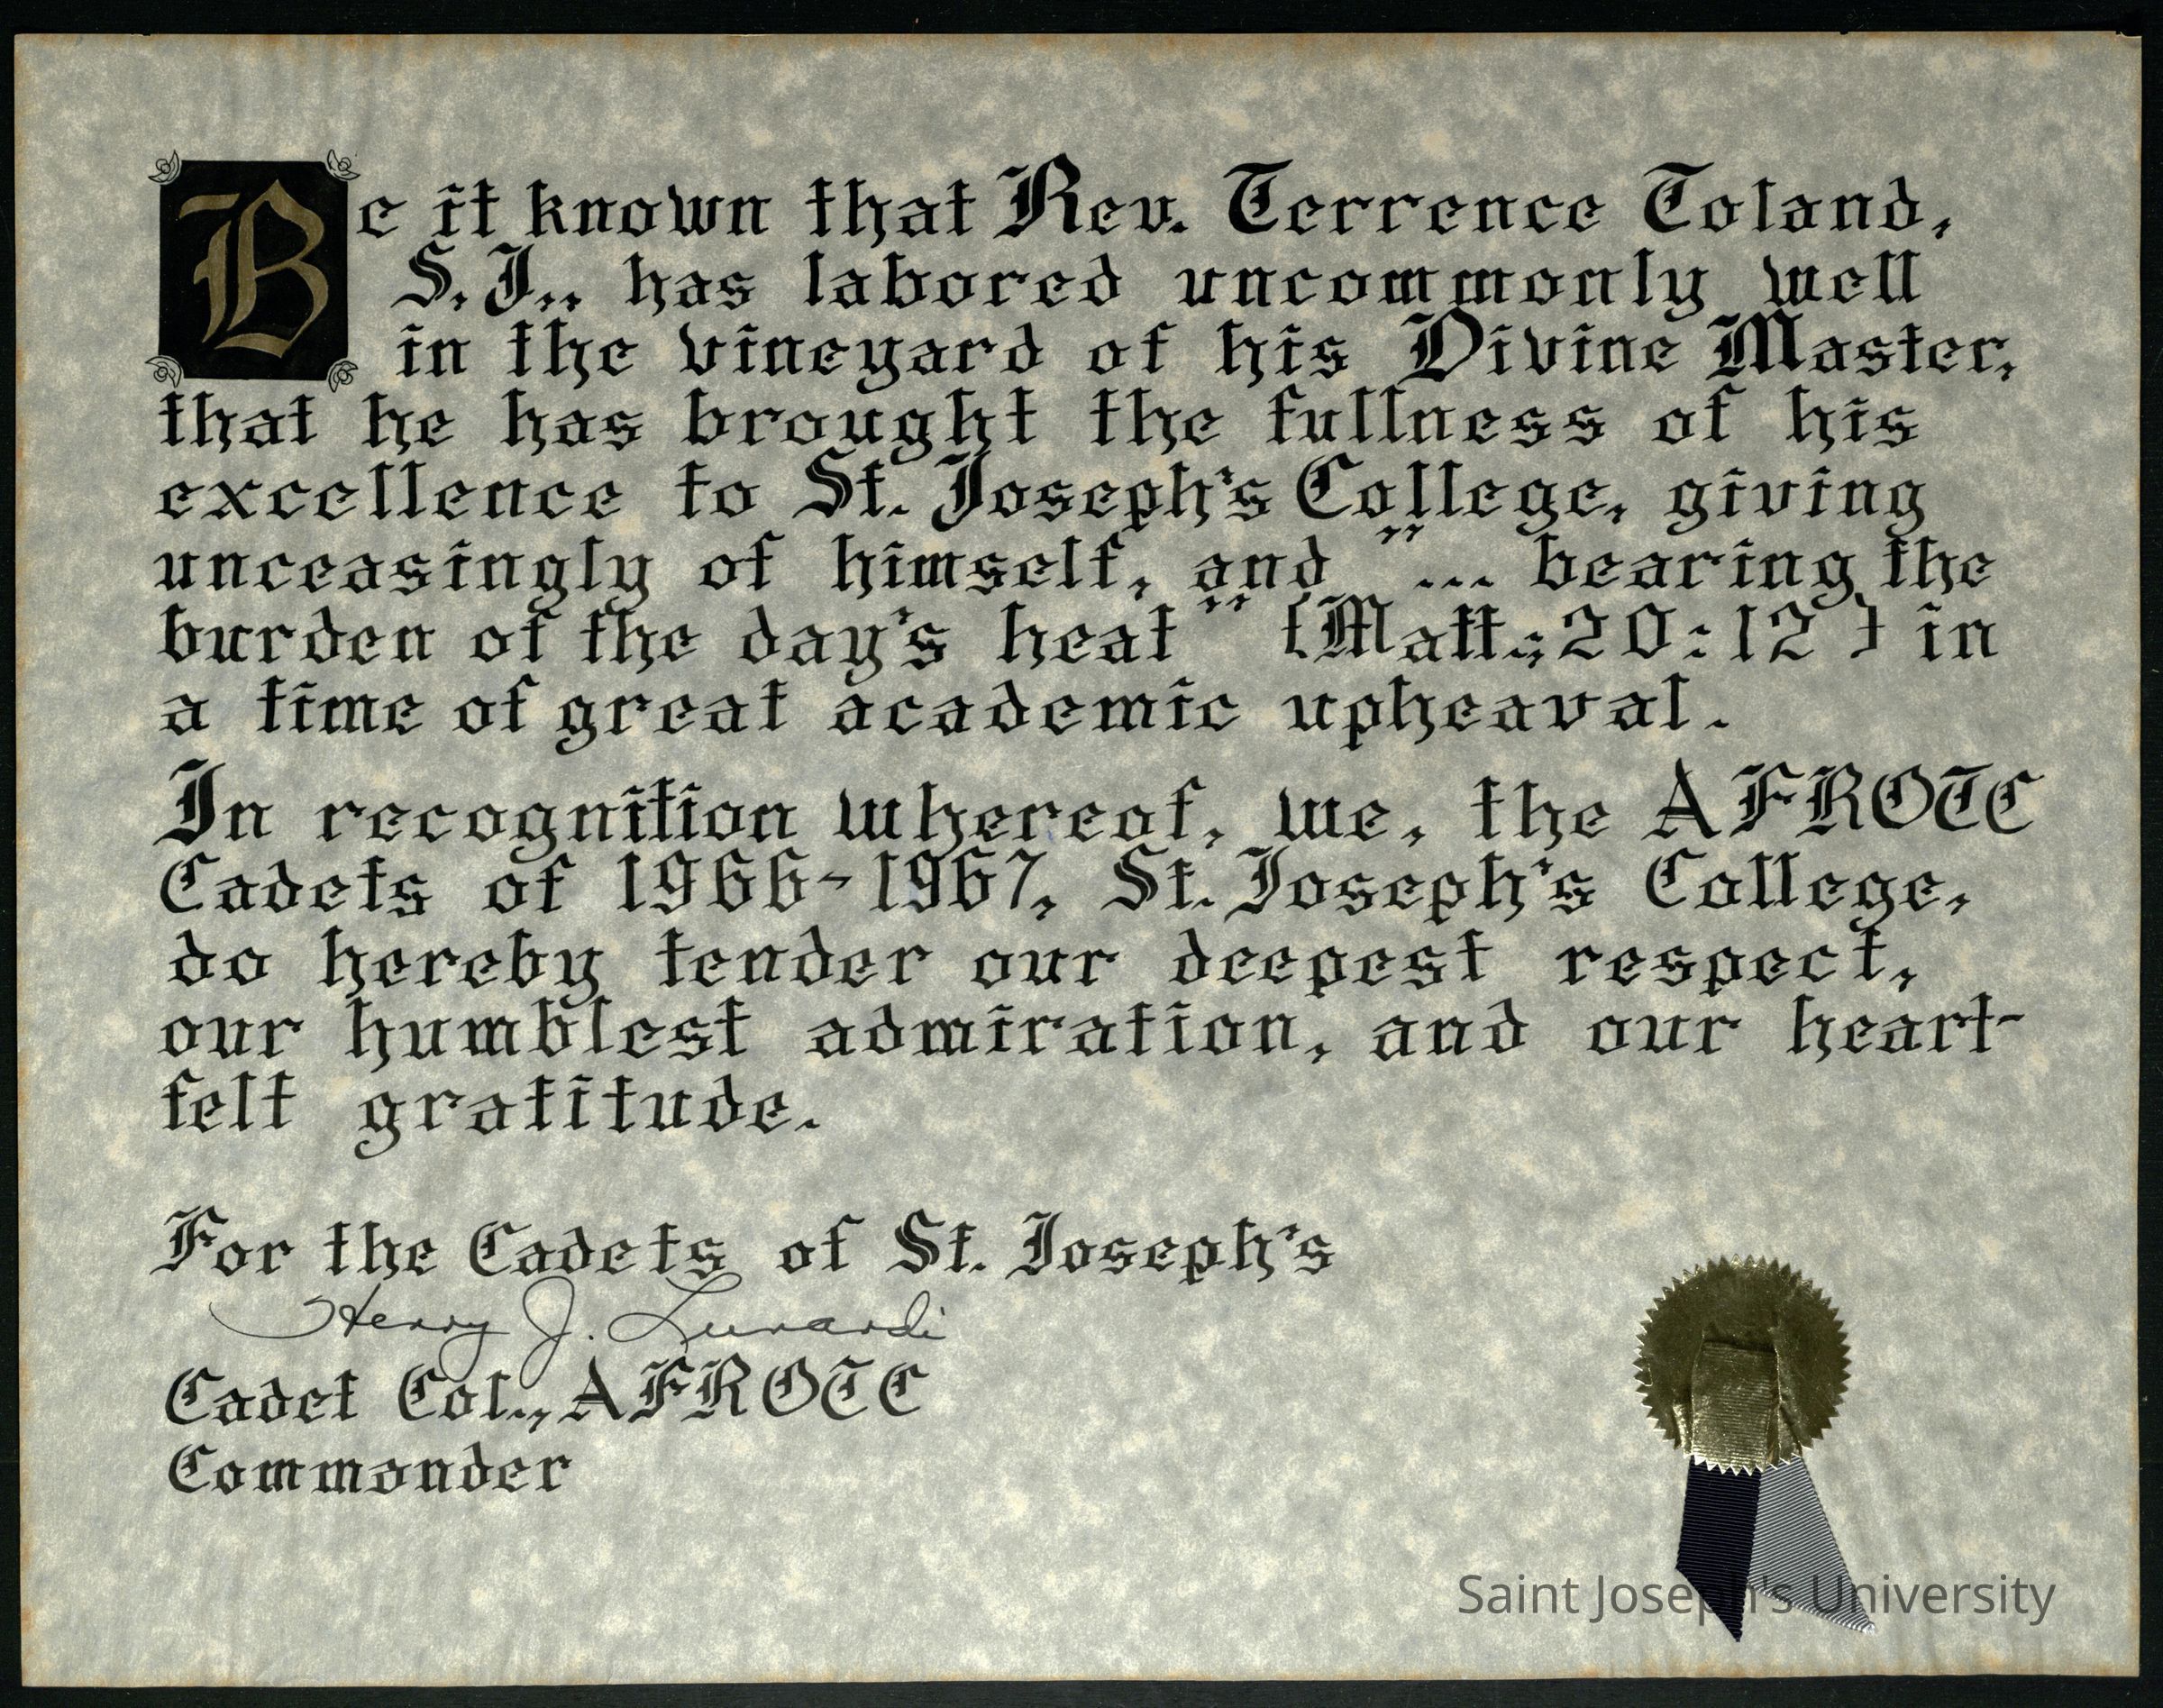 Be it known that Rev. Terrence Toland,
S.J., has labored uncommonly well
in the vineyard of his Divine Master,
that he has brought the fullness of his
excellence to St. Joseph's College, giving
unceasingly of himself, and "... bearing the
burden of the day's heat" (Matt.; 20:12) in
a time of great academic upheaval.
In recognition whereof, we, the AFROTC
Cadets of 1966-1967, St. Joseph's College,
do hereby tender our deepest respect,
our humblest admiration, and our heart-
felt gratitude.
For the Cadets of St. Joseph's
Henry J. Lunardi
Cadet Col., AFROTC
Commander
Saint Joseph's University